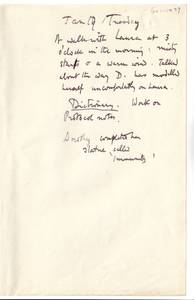 Jan 9 Tuesday
A walk with Laura at 3
o'clock in the morning: misty
stars & a warm wind. Talked
about the way D. has modelled
herself uncomfortably on Laura.
Dictionary. Work on
Protocol notes.
Dorothy completes her
statue called
'Immunity'